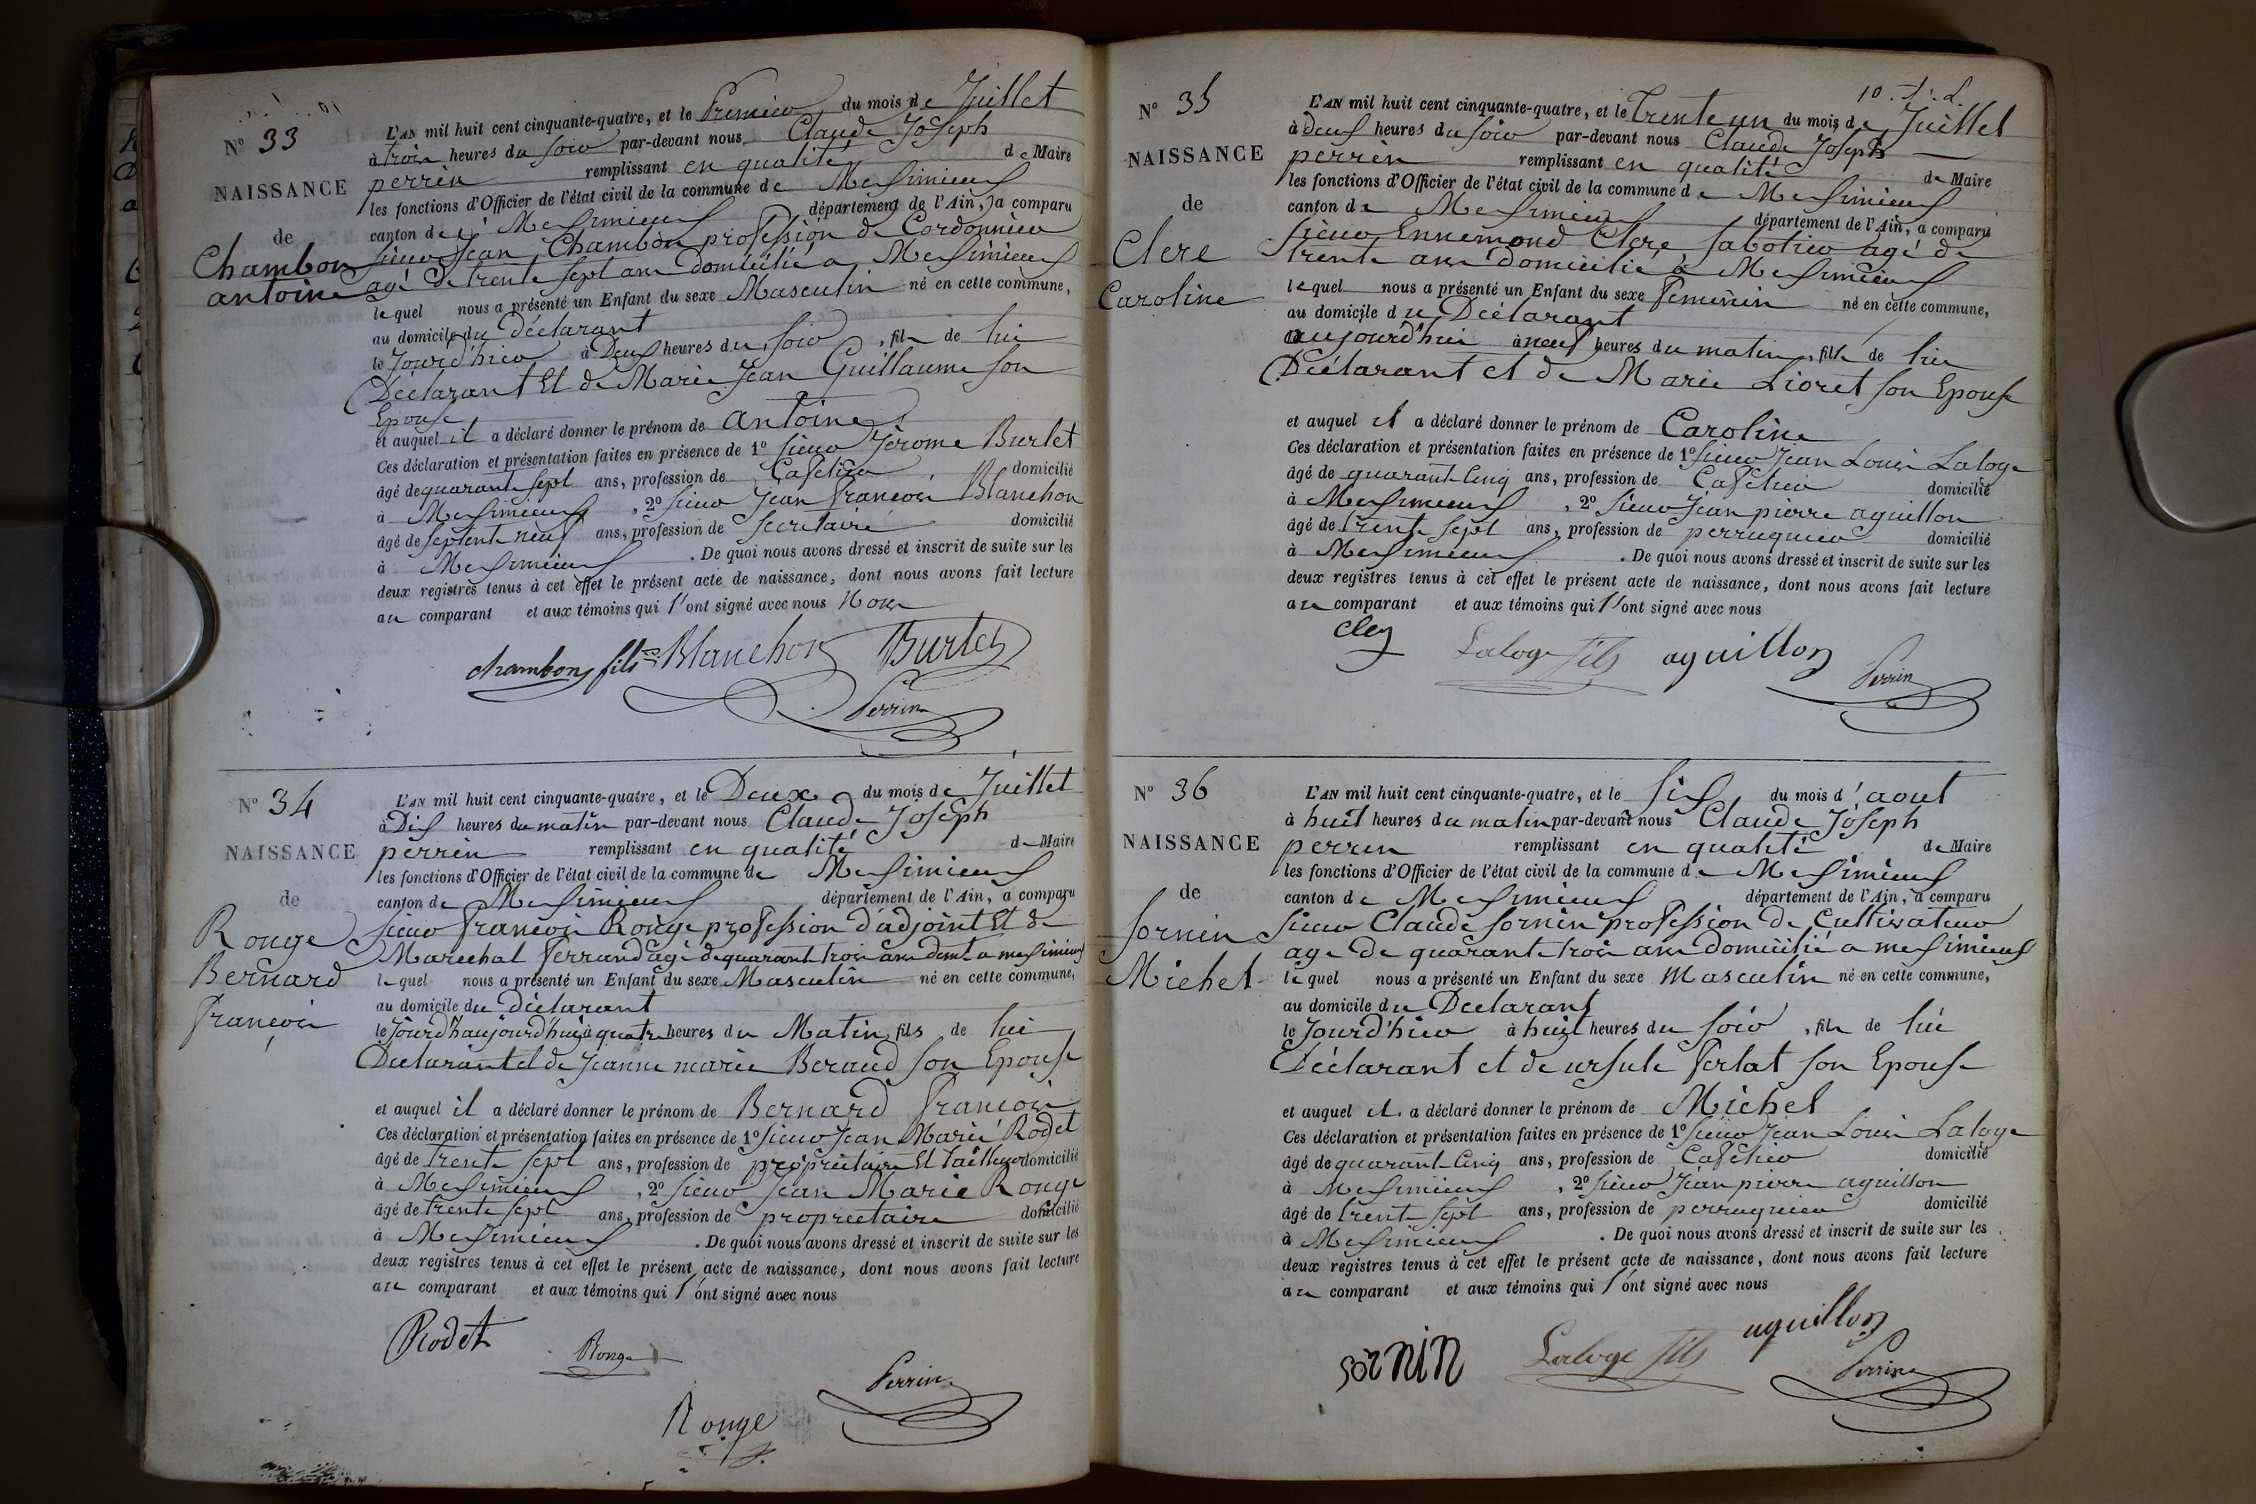 N° 33
NAISSANCE
de
Chambon
antoine
L'AN mil huit cent cinquante-quatre, et le Premier du mois de Juillet
à trois heures du soir par-devant nous Claude Joseph
perrin remplissant en qualité de Maire
les fonctions d'Officier de l'état civil de la commune de Meximieux
canton de Meximieux département de l'Ain, a comparu
sieur Jean Chambon profession de Cordonnier
agé de trente sept ans domicilié a Meximieux
lequel nous a présenté un Enfant du sexe Masculin né en cette commune,
au domicile du déclarant
le Jourd'hier à Deux heures du soir, fils de lui
Déclarant Et de Marie Jean Guillaume son
Epouse
et auquel il a déclaré donner le prénom de antoine
Ces déclaration et présentation faites en présence de 1° sieur Jérome Burlet
âgé de quarante sept ans, profession de Cafetier domicilié
à Meximieux, 2° sieur Jean françois Blanchon
âgé de septente neuf ans, profession de Secretaire domicilié
à Meximieux. De quoi nous avons dressé et inscrit de suite sur les
deux registres tenus à cet effet le présent acte de naissance, dont nous avons fait lecture
au comparant et aux témoins qui l'ont signé avec nous
chambon fils Blanchon Burlet
Perrin
N° 34
NAISSANCE
de
Rouge
Bernard
françois
L'AN mil huit cent cinquante-quatre, et le Deux du mois de Juillet
à Dix heures du matin par-devant nous Claude Joseph
perrin remplissant en qualité de Maire
les fonctions d'Officier de l'état civil de la commune de Meximieux
canton de Meximieux département de l'Ain, a comparu
sieur françois Rouge profession d'adjoint Et de
Marechal ferrand agé de quarante trois ans domt a meximieux
lequel nous a présenté un Enfant du sexe Masculin né en cette commune,
au domicile du déclarant
le Jourd'haujourd'hui à quatre heures du Matin, fils de lui
Déclarant et de Jeanne marie Beraud son Epouse
et auquel il a déclaré donner le prénom de Bernard françois
Ces déclaration et présentation faites en présence de 1° sieur Jean Marie Rodet
âgé de trente sept ans, profession de propriétaire Et tailleur domicilié
à Meximieux, 2° sieur Jean Marie Rouge
âgé de trente sept ans, profession de propriétaire domicilié
à Meximieux. De quoi nous avons dressé et inscrit de suite sur les
deux registres tenus à cet effet le présent acte de naissance, dont nous avons fait lecture
au comparant et aux témoins qui l'ont signé avec nous
Rodet Rouge
Perrin
Rouge
N° 35
NAISSANCE
de
Clere
Caroline
L'AN mil huit cent cinquante-quatre, et le trente un du mois de Juillet
à deux heures du soir par-devant nous Claude Joseph
perrin remplissant en qualité de Maire
les fonctions d'Officier de l'état civil de la commune de Meximieux
canton de Meximieux département de l'Ain, a comparu
sieur Ennemond Clere, sabotier agé de
trente ans domicilié à Meximieux
lequel nous a présenté un Enfant du sexe feminin né en cette commune,
au domicile du Déclarant
aujourd'hui à neuf heures du matin, fille de lui
Déclarant et de Marie Lioret son Epouse
et auquel il a déclaré donner le prénom de Caroline
Ces déclaration et présentation faites en présence de 1° sieur Jean Louis Laloge
âgé de quarante Cinq ans, profession de Cafetier domicilié
à Meximieux, 2° sieur Jean pierre aguillon
âgé de trente sept ans, profession de perruquier domicilié
à Meximieux. De quoi nous avons dressé et inscrit de suite sur les
deux registres tenus à cet effet le présent acte de naissance, dont nous avons fait lecture
au comparant et aux témoins qui l'ont signé avec nous
Laloge fils aguillon
Perrin
N° 36
NAISSANCE
de
sornin
Michel
L'AN mil huit cent cinquante-quatre, et le six du mois d'aout
à huit heures du matin par-devant nous Claude Joseph
perrin remplissant en qualité de Maire
les fonctions d'Officier de l'état civil de la commune de Meximieux
canton de Meximieux département de l'Ain, a comparu
sieur Claude sornin profession de Cultivateur
age de quarante trois ans domicilié a meximieux
lequel nous a présenté un Enfant du sexe masculin né en cette commune,
au domicile du Declarant
le Jourd'hier à huit heures du soir, fils de lui
Déclarant et de ursule ferlat son Epouse
et auquel il a déclaré donner le prénom de Michel
Ces déclaration et présentation faites en présence de 1° sieur Jean Louis Laloge
âgé de quarante Cinq ans, profession de Cafetier domicilié
à Meximieux, 2° sieur Jean pierre aguillon
âgé de trente sept ans, profession de perruquier domicilié
à Meximieux. De quoi nous avons dressé et inscrit de suite sur les
deux registres tenus à cet effet le présent acte de naissance, dont nous avons fait lecture
au comparant et aux témoins qui l'ont signé avec nous
sornin Laloge fils aguillon
Perrin